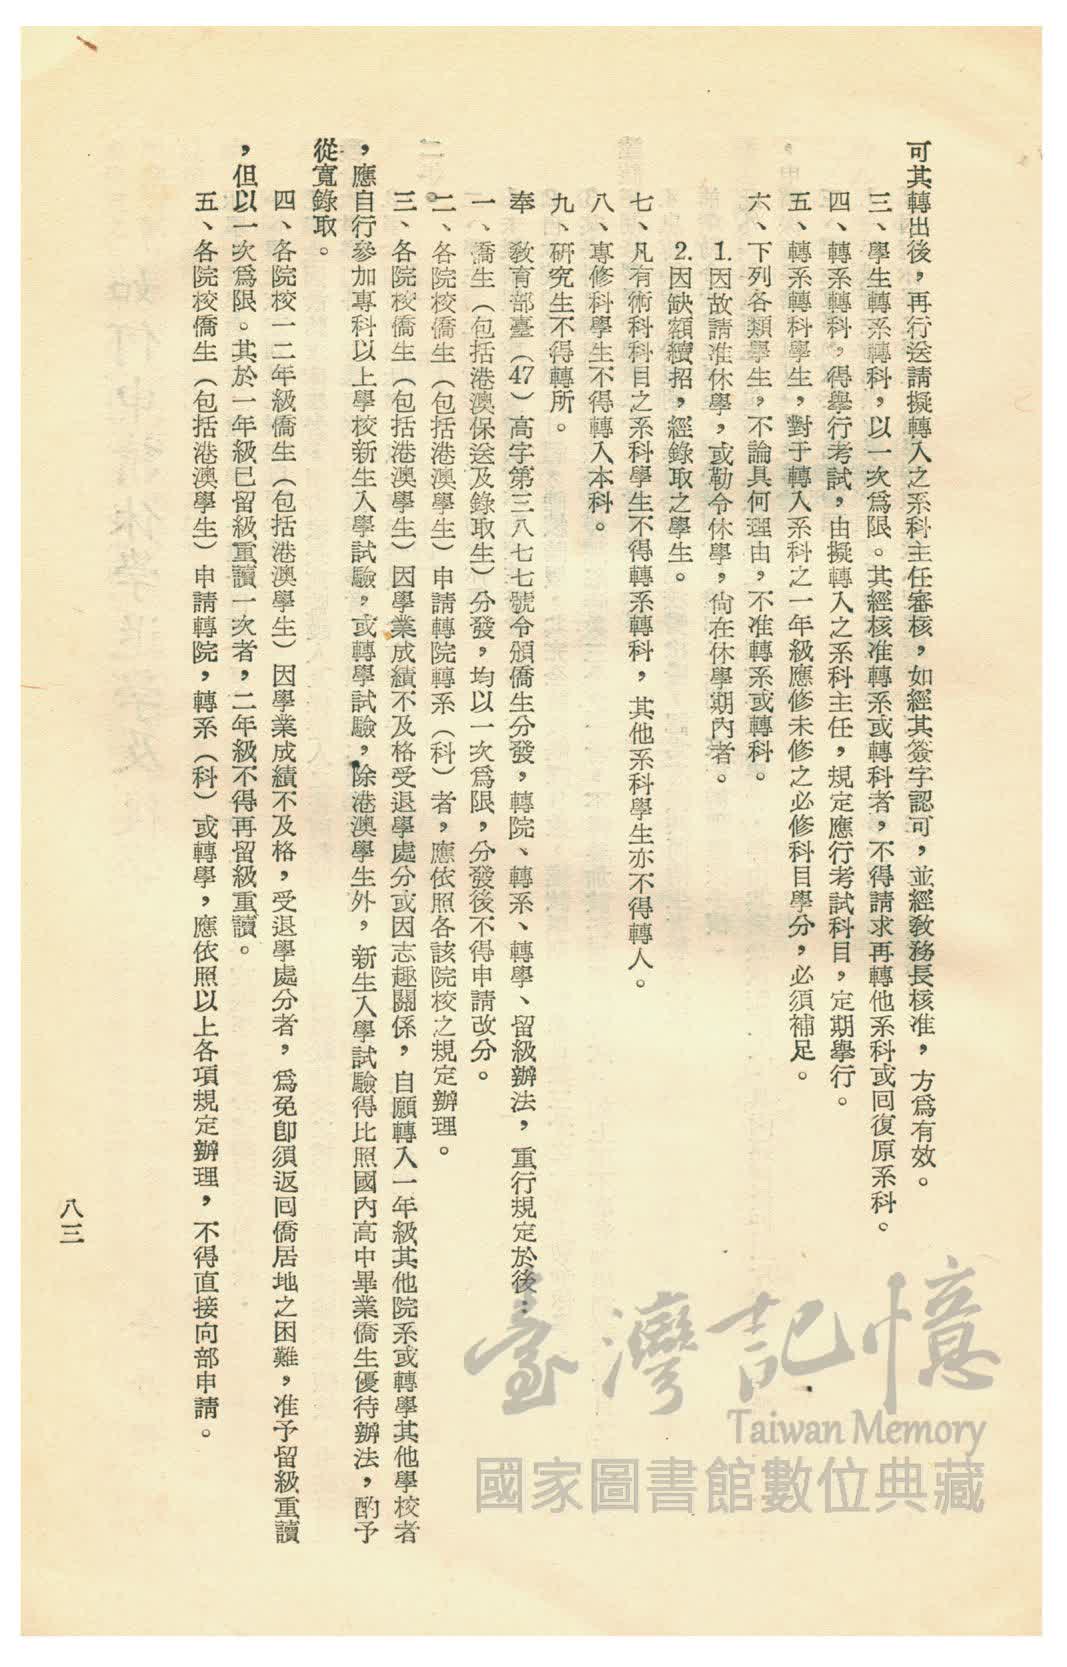 可其轉出後，再行送請擬轉入之系科主任審核，如經其簽字認可，並經敎務長核准，方爲有效。
三、學生轉系轉科，以一次爲限。其經核准轉系或轉科者，不得請求再轉他系科或回復原系科。
四、轉系轉科，得舉行考試，由擬轉入之系科主任，規定應行考試科目，定期舉行。
五、轉系轉科學生，對于轉入系科之一年級應修未修之必修科目學分，必須補足。
六、下列各類學生，不論具何理由，不准轉系或轉科。
1.因故請准休學，或勒令休學，尙在休學期內者。
2.因缺額續招，經錄取之學生。
七、凡有術科科目之系科學生不得轉系轉科，其他系科學生亦不得轉入。
八、專修科學生不得轉入本科。
九、硏究生不得轉所。
奉　敎育部臺（47）高字第三八七七號令頒僑生分發，轉院、轉系、轉學、留級辦法，重行規定於後：
一、僑生（包括港澳保送及錄取生）分發，均以一次爲限，分發後不得申請改分。
二、各院校僑生（包括港澳學生）申請轉院轉系（科）者，應依照各該院校之規定辦理。
三、各院校僑生（包括港澳學生）因學業成績不及格受退學處分或因志趣關係，自願轉入一年級其他院系或轉學其他學校者
，應自行參加專科以上學校新生入學試驗，或轉學試驗，除港澳學生外，新生入學試驗得比照國內高中畢業僑生優待辦法，酌予
從寬錄取。
四、各院校一二年級僑生（包括港澳學生）因學業成績不及格，受退學處分者，爲免卽須返囘僑居地之困難，准予留級重讀
，但以一次爲限。其於一年級已留級重讀一次者，二年級不得再留級重讀。
五、各院校僑生（包括港澳學生）申請轉院，轉系（科）或轉學，應依照以上各項規定辦理，不得直接向部申請。
八三
臺灣記憶
Taiwan Memory
國家圖書館數位典藏